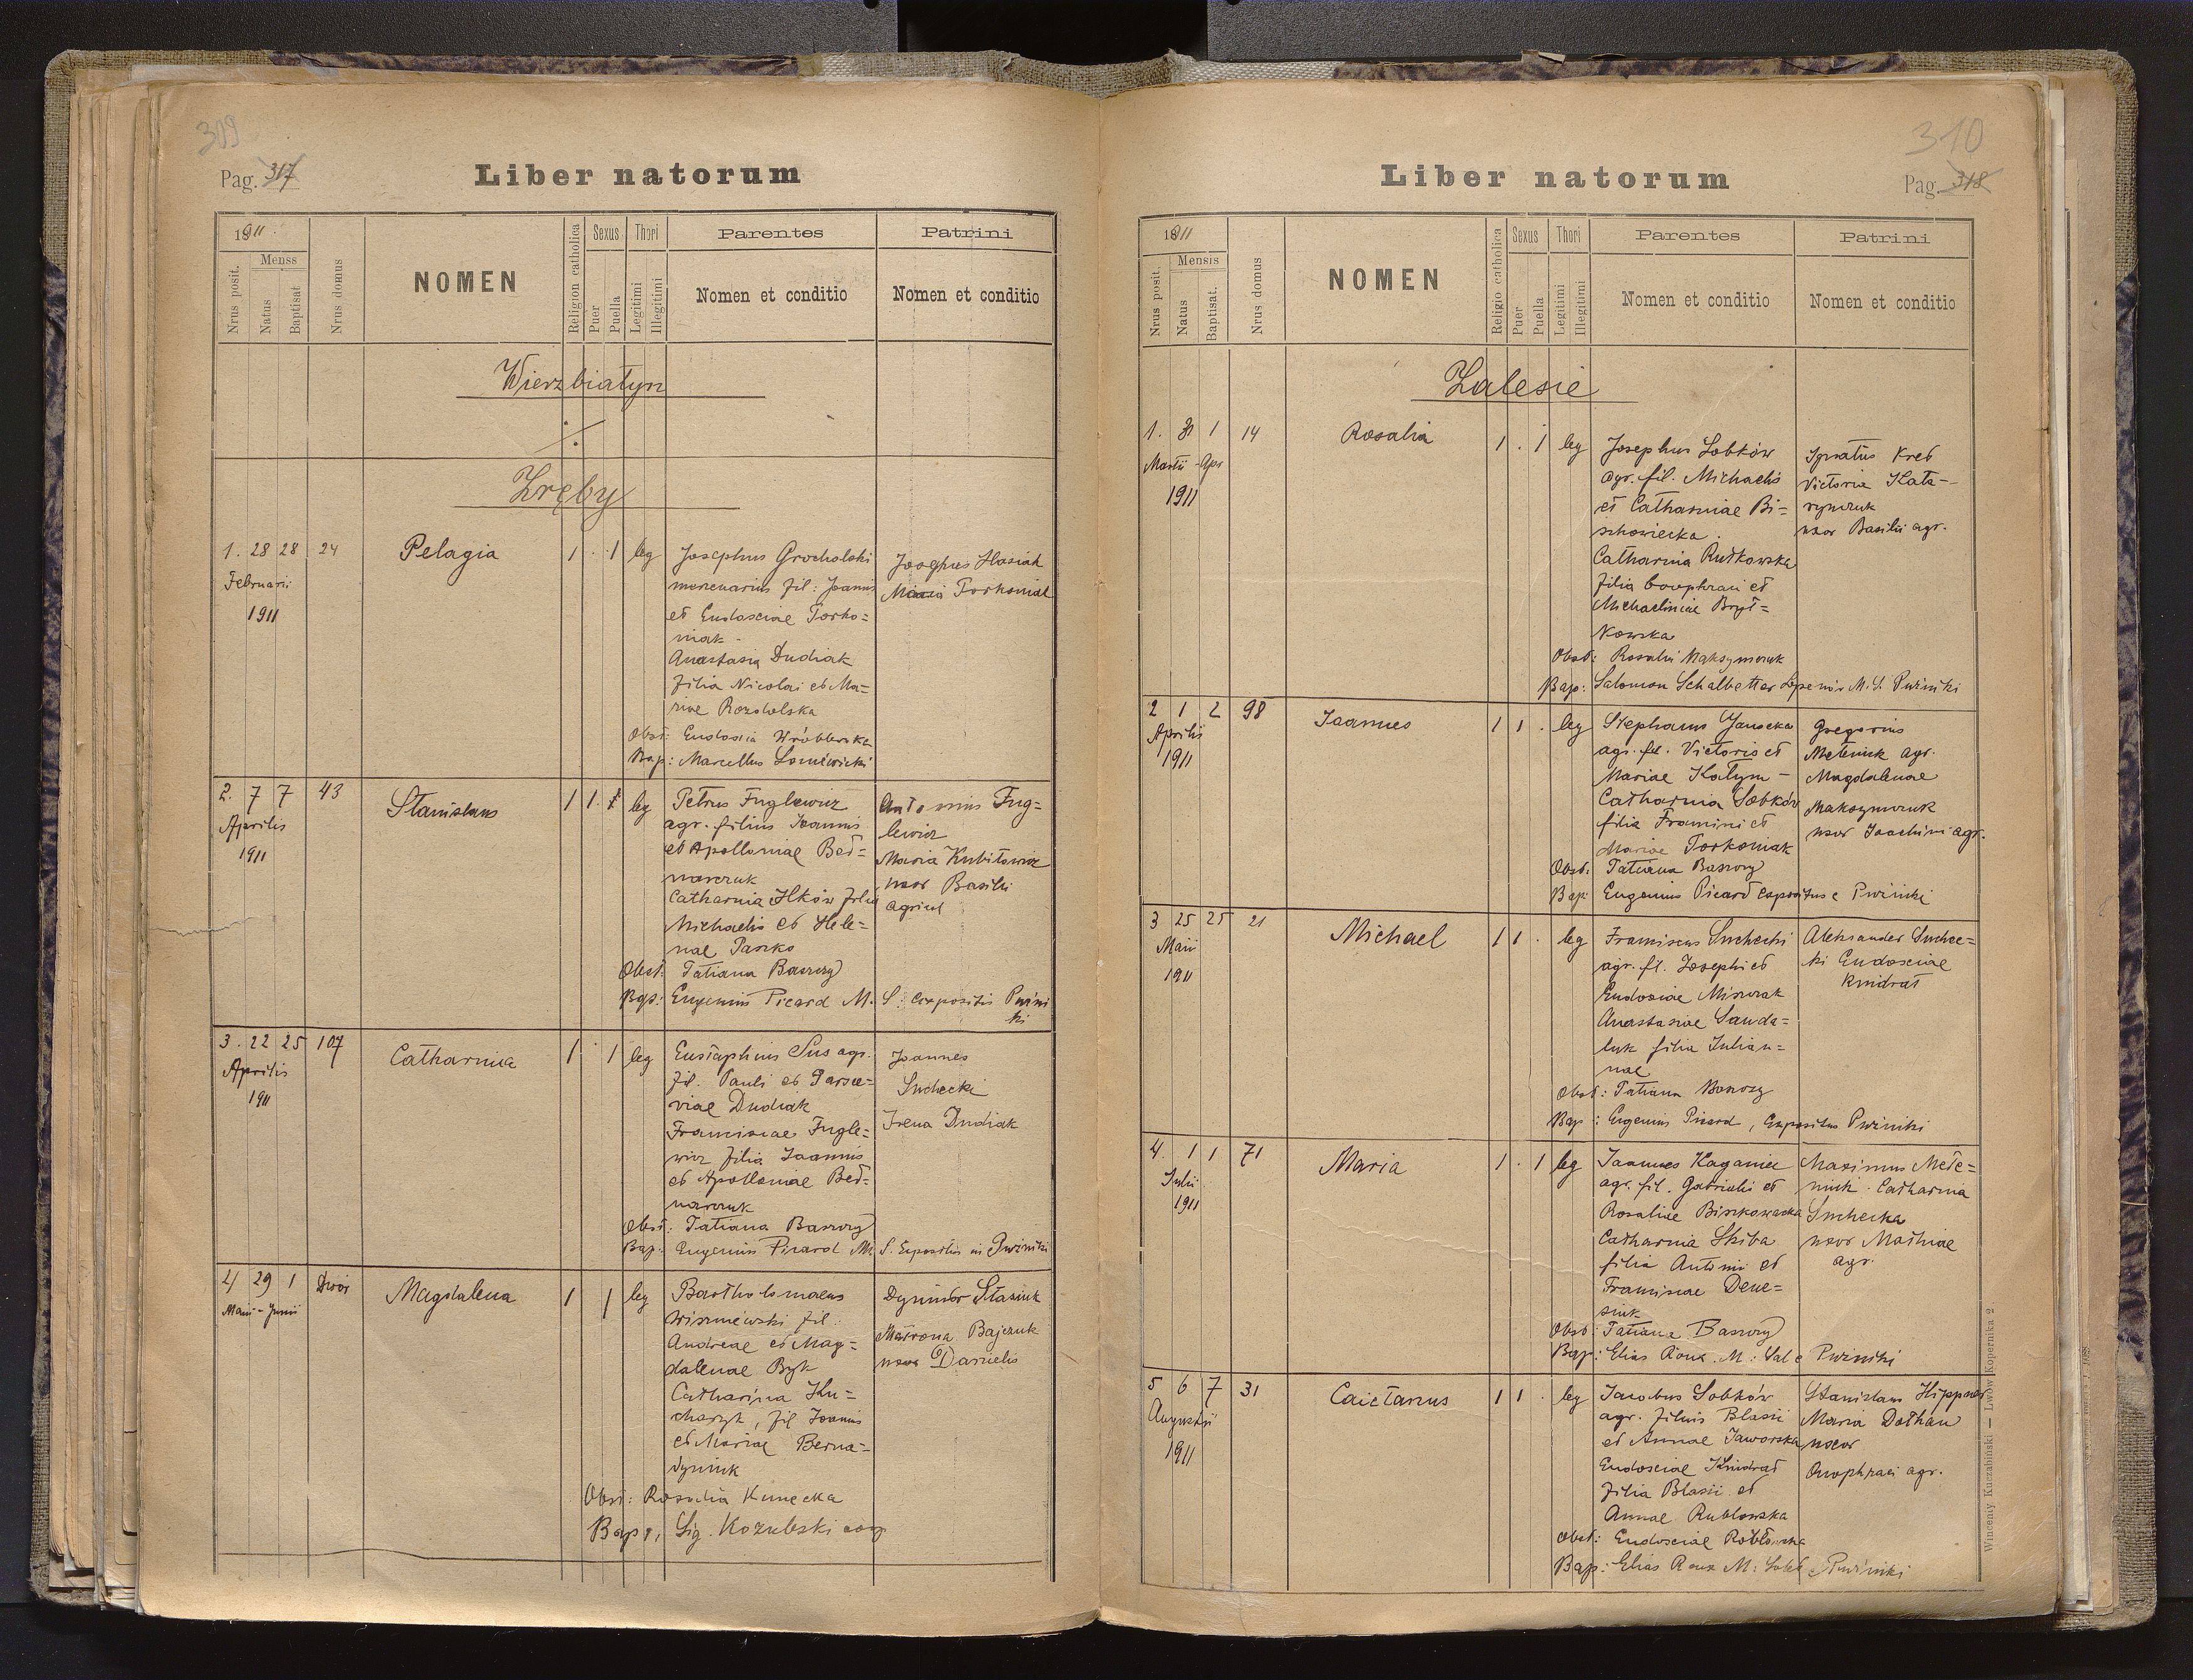 309
Pag. 317
Liber natorum
1911.
Menss
Nrus posit.
Natus
Baptisat
Nrus domus
NOMEN
Religion catholica
Sexus
Puer
Puella
Thori
Legitimi
Illegitimi
Parentes
Nomen et conditio
Patrini
Nomen et conditio
Wierzbiatyn
Zręby
1. 28 28 24
Februarii
1911
Pelagia
1 . 1 leg
Josephus Grocholski
mercenarius fil: Joannis
et Eudosciae Torko=
niak
Anastasia Dudiak
filia Nicolai et Ma=
riae Rozdolska
Obst: Eudosia Wróblewska
Bap: Marcellus
Josephus Hasiak
Maria Torkoniak
2. 7 7 43
Aprilis
1911
Stanislaus
1 1 . leg
Petrus Fuglewicz
agr. filius Joannis
et Apolloniae Bed=
narczuk
Catharina Ilków filia
Michaelis et Hele=
nae Paszko
Obst: Tatiana Baszczy
Bap: Eugenius Picard M. S. expositis Pużni
ki
Antonius Fug=
lewicz
Maria Kubitowicz
uxor Basilii
agricol
3. 22 25 107
Aprilis
1911
Catharina
1 . 1 leg
Eustaphius Sus agr.
fil. Pauli et Parsce=
viae Dudiak
Franciscae Fugle=
wicz filia Joannis
et Apolloniae Bed=
narczuk
Obst: Tatiana Baszczy
Bap: Eugenius Picard M. S. Expositus in Pużniki
Joannes
Suchecki
Irena Dudiak
4 29 1 Dwór
Maii - Junii
Magdalena
1 1 leg
Bartholomaeus
Wiszniewski fil.
Andreae et Mag=
dalenae Byk
Catharina Ku=
charzyk, fil Joannis
et Mariae Berna=
dyniuk
Obst: Rosalia Kunecka
Bap:, Sig. Kozubski coop
Dymitr Stasiuk
Matrona Bajczuk
uxor Danielis
310
Liber natorum
Pag. 318
1911
Mensis
Nrus posit.
Natus
Baptisat.
Nrus domus
NOMEN
Religio catholica
Sexus
Puer
Puella
Thori
Legitimi
Illegitimi
Parentes
Nomen et conditio
Patrini
Nomen et conditio
Zalesie
1. 31 1 14
Martii - Apr
1911
Rosalia
1 . 1 leg
Josephus Sobków
agr. fil. Michaelis
et Catharniae Bi=
szkowiecka
Catharina Rutkowska
filia et
Michaelinae Bryt=
kowska
Obst: Rosalia Maksymczuk
Bap: Salomon Schalbetter M. S. Pużniki
Ignatius Kret
Victoria Kata-
rynczuk
uxor Basilii agr.
2 1 2 98
Aprilis
1911
Joannes
1 1 . leg
Stephanus Janecka
agr. fil. Victoris et
Mariae Katyn-
Catharnia Sobków
filia Francisci et
Mariae Torkoniak
Obst: Tatiana Baszczy
Bap: Eugenius Picard expositus e Pużniki
Gregorius
Meteniuk agr.
Magdalenae
Maksymczuk
uxor Joachimi agr.
3 25 25 21
Maii
1911
Michael
1 1 . leg
Franciscus Suchecki
agr. fil. Josephi et
Eudosiae Misurak
Anastasiae Sawda=
luk filia Julian=
nae
Obst: Tatiana Baszczy
Bap: Eugenius Picard, Expositus Pużniki
Aleksander Suchec=
ki Eudosciae
Kindrat
4. 1 1 71
Julii
1911
Maria
1 . 1 leg
Joannes Kaganiec
agr. fil. Gabrielis et
Rosaliae Biszkowiecka
Catharnia Skiba
filia Antonii et
Franciscae Dene=
siuk
Obst: Tatiana Baszczy
Bap: Elias Roux M: Sal e Pużniki
Maximus Mete=
niuk. Catharina
Suchecka
uxor Mathiae
agr.
5 6 7 31
Augustii
1911
Caietanus
1 1 . leg
Jacobus Sobków
agr. filius Blasii
et Annae Jaworska
Eudosciae Kindrat
filia Blasii et
Annae Rublowska
Obst: Eudosciae Robłowska
Bap: Elias Roux M: Sal e Pużniki
Stanislaus Hippner
Maria Dothan
uxor
Onophraei agr.
Wincenty Kuczabiński — Lwów Kopernika 2.